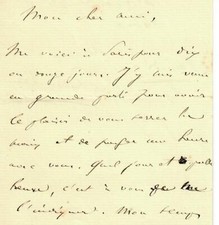 Mon cher ami,
Me voici à Paris pour dix
ou onze jours. J'y suis venu
en grande partie pour avoir
le plaisir de vous serrer la
main et de passer une heure
avec vous. Quel jour et quelle
heure, c'est à vous de me
l'indiquer. Mon temps